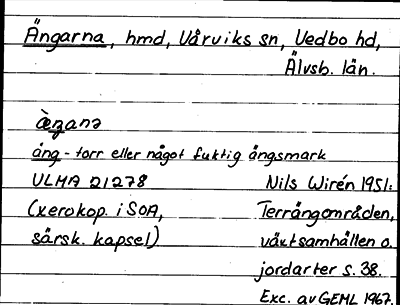 Ängarna, hmd, Vårviks sn, Vedbo hd,
Älvsb. län.
æ̀ŋanə
äng - torr eller något fuktig ängsmark
ULMA 21278 Nils Wirén 1951:
(xerokop. i SOA, Terrängområden,
särsk. kapsel) växtsamhällen o.
jordarter s. 38.
Exc. av GEML 1967.